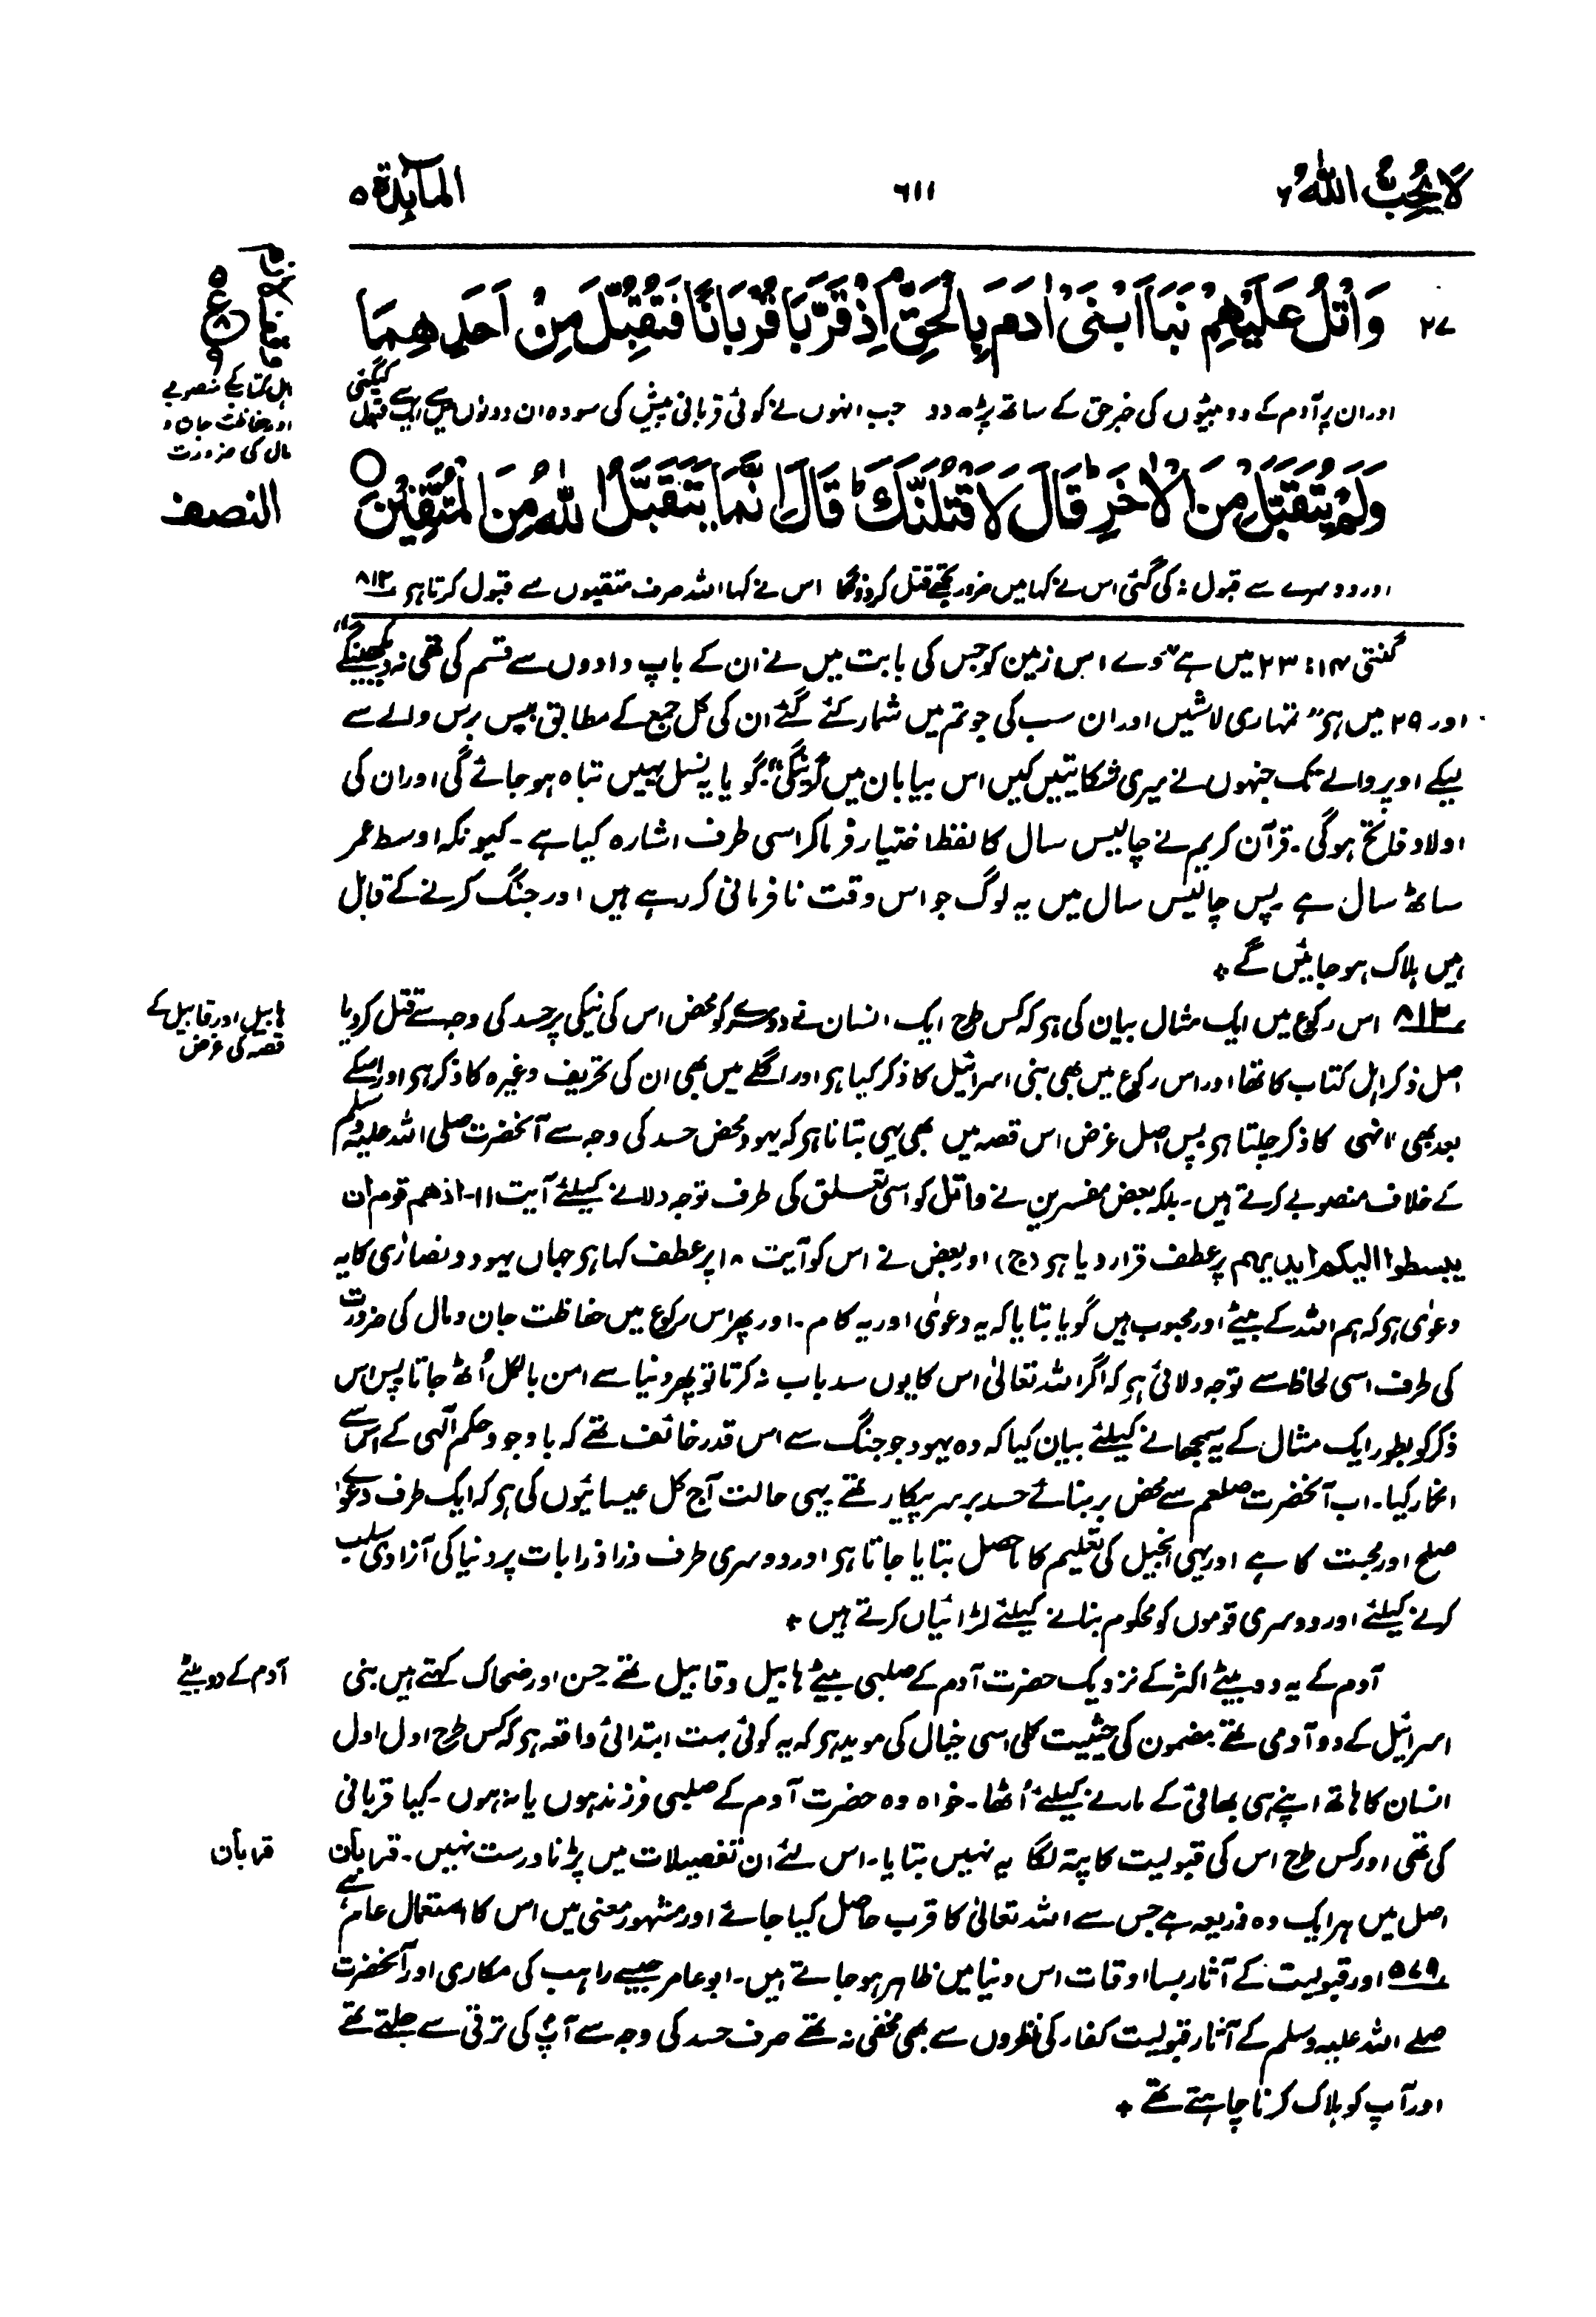 لَا يُحِبُّ اللّٰهُ ۶
۶۱۱
المآئدة ۵
۲۷ وَاتْلُ عَلَيْهِمْ نَبَاَ ابْنَیْ اٰدَمَ بِالْحَقِّ اِذْ قَرَّبَا قُرْبَانًا فَتُقُبِّلَ مِنْ اَحَدِهِمَا
اور ان پر آدم کے دو بیٹوں کی خبر حق کے ساتھ پڑھ دو جب انہوں نے کوئی قربانی پیش کی سو وہ ان دونوں میں سے ایک سے قبول کیگئی
وَلَمْ يُتَقَبَّلْ مِنَ الْاٰخَرِ ؕ قَالَ لَاَقْتُلَنَّكَ ؕ قَالَ اِنَّمَا يَتَقَبَّلُ اللّٰهُ مِنَ الْمُتَّقِيْنَ ○
اور دوسرے سے قبول نہ کی گئی اس نے کہا میں ضرور تجھے قتل کردونگا اس نے کہا اللہ صرف متقیوں سے قبول کرتا ہو ۸۱۲
اہل کتاب کے منصوبے
اور حفاظت جان و
مال کی ضرورت
النصف
گنتی ۱۴: ۲۳ میں ہے "وے اس زمین کو جس کی بابت میں نے ان کے باپ دادوں سے قسم کی تھی نہ دیکھینگے"
اور ۲۹ میں ہو "تمہاری لاشیں اور ان سب کی جو تم میں شمار کئے گئے ان کی کل جمع کے مطابق بیس برس والے سے
لیکے اوپر والے تک جنہوں نے میری شکایتیں کیں اس بیابان میں گرینگی" گویا یہ نسل یہیں تباہ ہو جائے گی اور ان کی
اولاد فاتح ہوگی۔ قرآن کریم نے چالیس سال کا لفظ اختیار فرما کر اسی طرف اشارہ کیا ہے۔ کیونکہ اوسط عمر
ساٹھ سال ہے پس چالیس سال میں یہ لوگ جو اس وقت نافرمانی کر رہے ہیں اور جنگ کرنے کے قابل
ہیں ہلاک ہو جائیں گے +
۸۱۲ اس رکوع میں ایک مثال بیان کی ہو کہ کس طرح ایک انسان نے دوسرے کو محض اس کی نیکی پر حسد کی وجہ سے قتل کر دیا
ہابیل اور قابیل کے
قصہ کی غرض
اصل ذکر اہل کتاب کا تھا اور اس رکوع میں بھی بنی اسرائیل کا ذکر کیا ہو اور اگلے میں بھی ان کی تحریف وغیرہ کا ذکر ہو اور اسکے
بعد بھی انہی کا ذکر چلتا ہو پس اصل غرض اس قصہ میں بھی یہی بتانا ہو کہ یہود محض حسد کی وجہ سے آنحضرت صلی اللہ علیہ وسلم
کے خلاف منصوبے کرتے ہیں۔ بلکہ بعض مفسرین نے واتل کو اسی تعلق کی طرف توجہ دلانے کیلئے آیت ۱۱۔ اذھم قوم ان
یبسطوا الیکم ایدیہم پر عطف قرار دیا ہو (ج) اور بعض نے اس کو آیت ۱۸ پر عطف کہا ہو جہاں یہود و نصاریٰ کا یہ
دعویٰ ہو کہ ہم اللہ کے بیٹے اور محبوب ہیں گویا بتایا کہ یہ دعویٰ اور یہ کام۔ اور پھر اس رکوع میں حفاظت جان و مال کی ضرورت
کی طرف اسی لحاظ سے توجہ دلائی ہو کہ اگر اللہ تعالیٰ اس کا یوں سد باب نہ کرتا تو پھر دنیا سے امن بالکل اُٹھ جاتا پس اس
ذکر کو بطور ایک مثال کے یہ سمجھانے کیلئے بیان کیا کہ وہ یہود جو جنگ سے اس قدر خائف تھے کہ باوجود حکم الٰہی کے اس سے
انکار کیا۔ اب آنحضرت صلعم سے محض بر بنائے حسد بر سر پیکار تھے یہی حالت آج کل عیسائیوں کی ہو کہ ایک طرف دعوٰے
صلح اور محبت کا ہے اور یہی انجیل کی تعلیم کا ماحصل بتایا جاتا ہو اور دوسری طرف ذرا ذرا بات پر دنیا کی آزادی سلب
کرنے کیلئے اور دوسری قوموں کو محکوم بنانے کیلئے لڑائیاں کرتے ہیں +
آدم کے یہ دو بیٹے اکثر کے نزدیک حضرت آدم کے صلبی بیٹے ہابیل و قابیل تھے حسن اور ضحاک کہتے ہیں بنی
آدم کے دو بیٹے
اسرائیل کے دو آدمی تھے مضمون کی حیثیت کلی اسی خیال کی موید ہو کہ یہ کوئی بہت ابتدائی واقعہ ہو کہ کس طرح اول اول
انسان کا ہاتھ اپنے ہی بھائی کے مارنے کیلئے اُٹھا۔ خواہ وہ حضرت آدم کے صلبی فرزند ہوں یا نہ ہوں۔ کیا قربانی
کی تھی اور کس طرح اس کی قبولیت کا پتہ لگا یہ نہیں بتایا۔ اس لئے ان تفصیلات میں پڑنا درست نہیں۔ قربان
قربان
اصل میں ہر ایک وہ ذریعہ ہے جس سے اللہ تعالیٰ کا قرب حاصل کیا جائے اور مشہور معنی میں اس کا استعمال عام ہے
۵۷۹ اور قبولیت کے آثار بسا اوقات اس دنیا میں ظاہر ہو جاتے ہیں۔ ابو عامر جیسے راہب کی مکاری اور آنحضرت
صلے اللہ علیہ وسلم کے آثار قبولیت کفار کی نظروں سے بھی مخفی نہ تھے صرف حسد کی وجہ سے آپؐ کی ترقی سے جلتے تھے
اور آپ کو ہلاک کرنا چاہتے تھے +